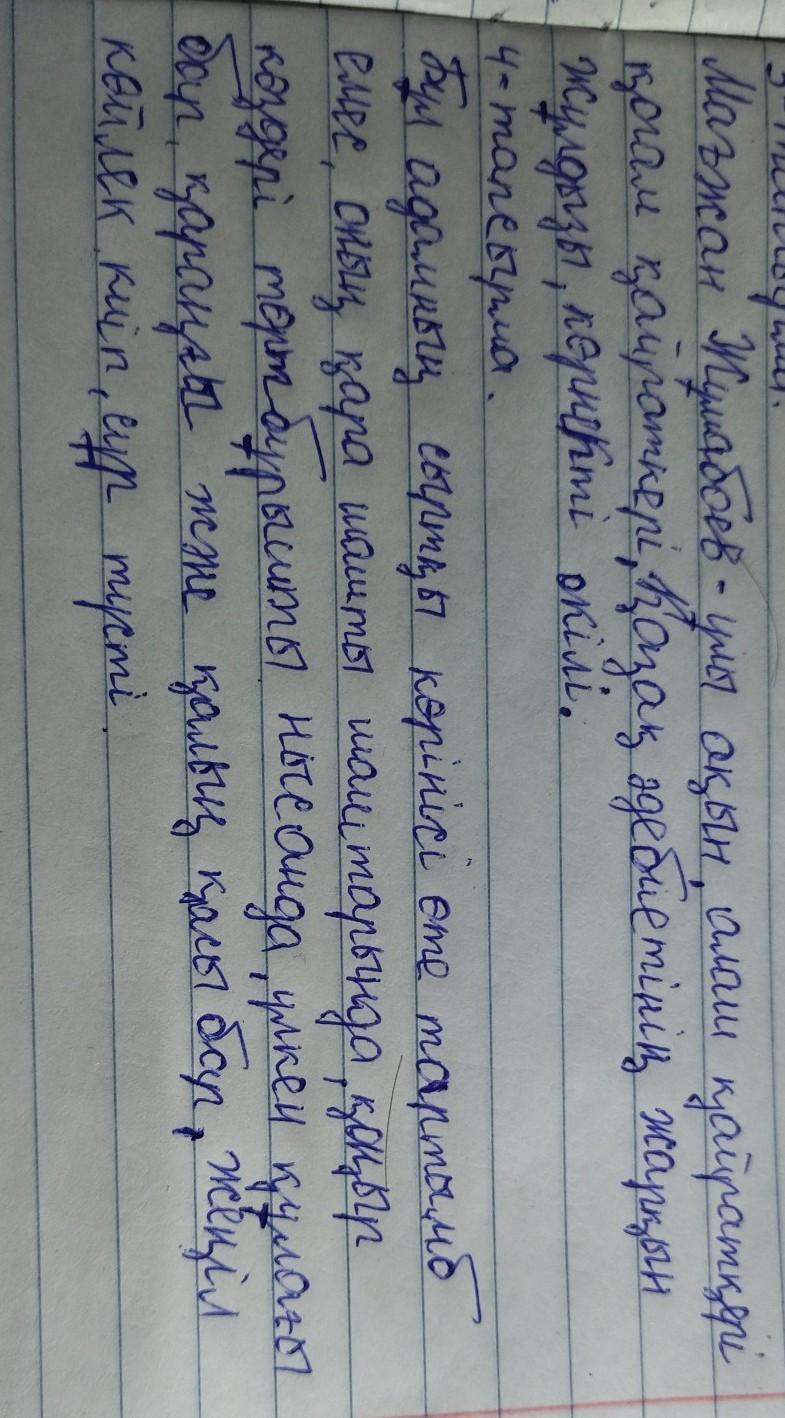 3-тапсырма.
Мағжан Жұмабаев - ұлы ақын, алаш қайраткері
қоғам қайраткері, Қазақ әдебиетінің жарқын
жұлдызы, көрнекті өкілі.
4-тапсырма.
Бұл адамның сыртқы көрінісі өте тартымб
емес, оның қара шашты шаштарында, қоңыр
көздері төртбұрышты нысанда, үлкен құлағы
бар, қараңғы жже қалың қасы бар, жеңіл
көйлек киіп, сұр түсті